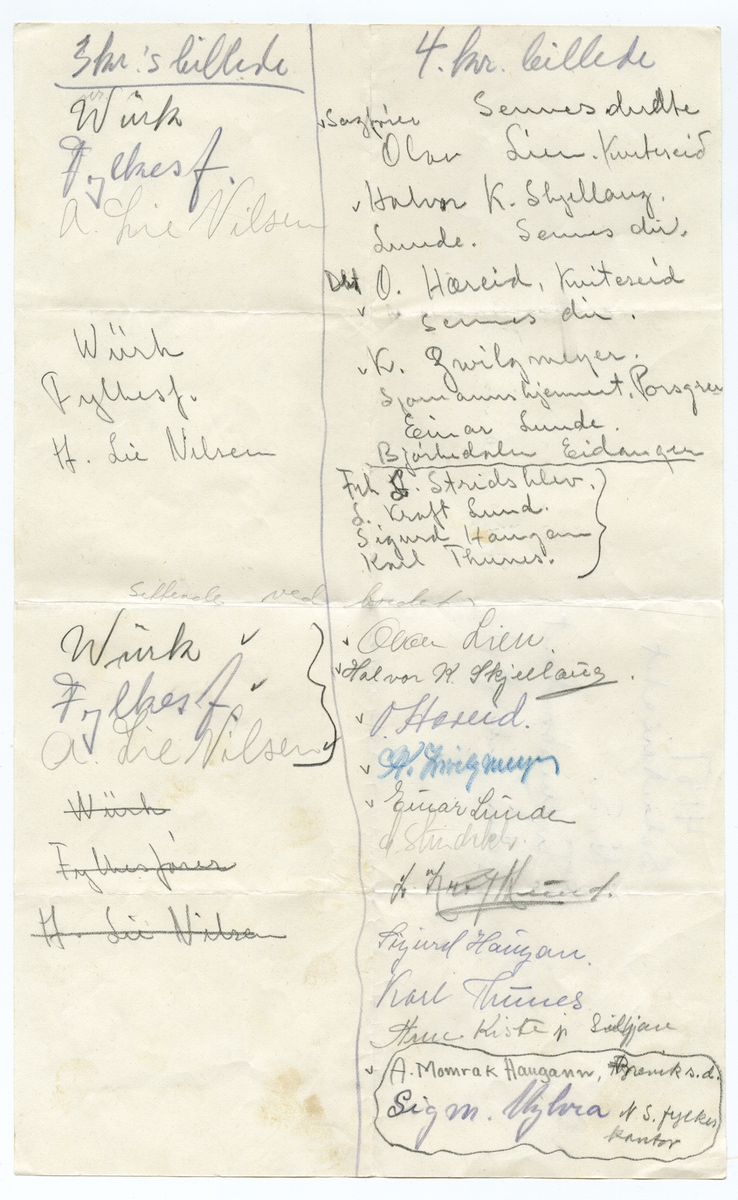 3 kr.'s billede
Würk
Fylkesf.
A. Lie Nilsen
Würk
Fylkesf.
H. Lie Nilsen
Sittende ved bordet
Würk
Fylkesf
A. Lie Nilsen
Würk
Fylkesfører
H. Lie Nilsen
4. kr. billede
Sennesdudte
Olav Lien. Kviteseid
Halvor K. Skjellaug.
Lunde. Sennes dir.
O. Høreid, Kviteseid
Sennes dir.
K. Zwilgmeyer.
Sjømannshjemmet, Porsgrun
Einar Lunde.
Bjørkedalen Eidanger
J. Stridsklev.
J. Kraft Lund.
Sigurd Haugan
Karl Thunes.
Olav Lien.
Halvor K. Skjellaug.
O. Høreid.
K. Zwilgmeyer
Einar Lunde
J. Kraft Lund.
Sigurd Haugan.
Karl Thunes
Arne Kiste jr Siljan
A. Momrak Haugann, Brevik s.d.
Sigm. Mylvra N S. fylkes
kontor